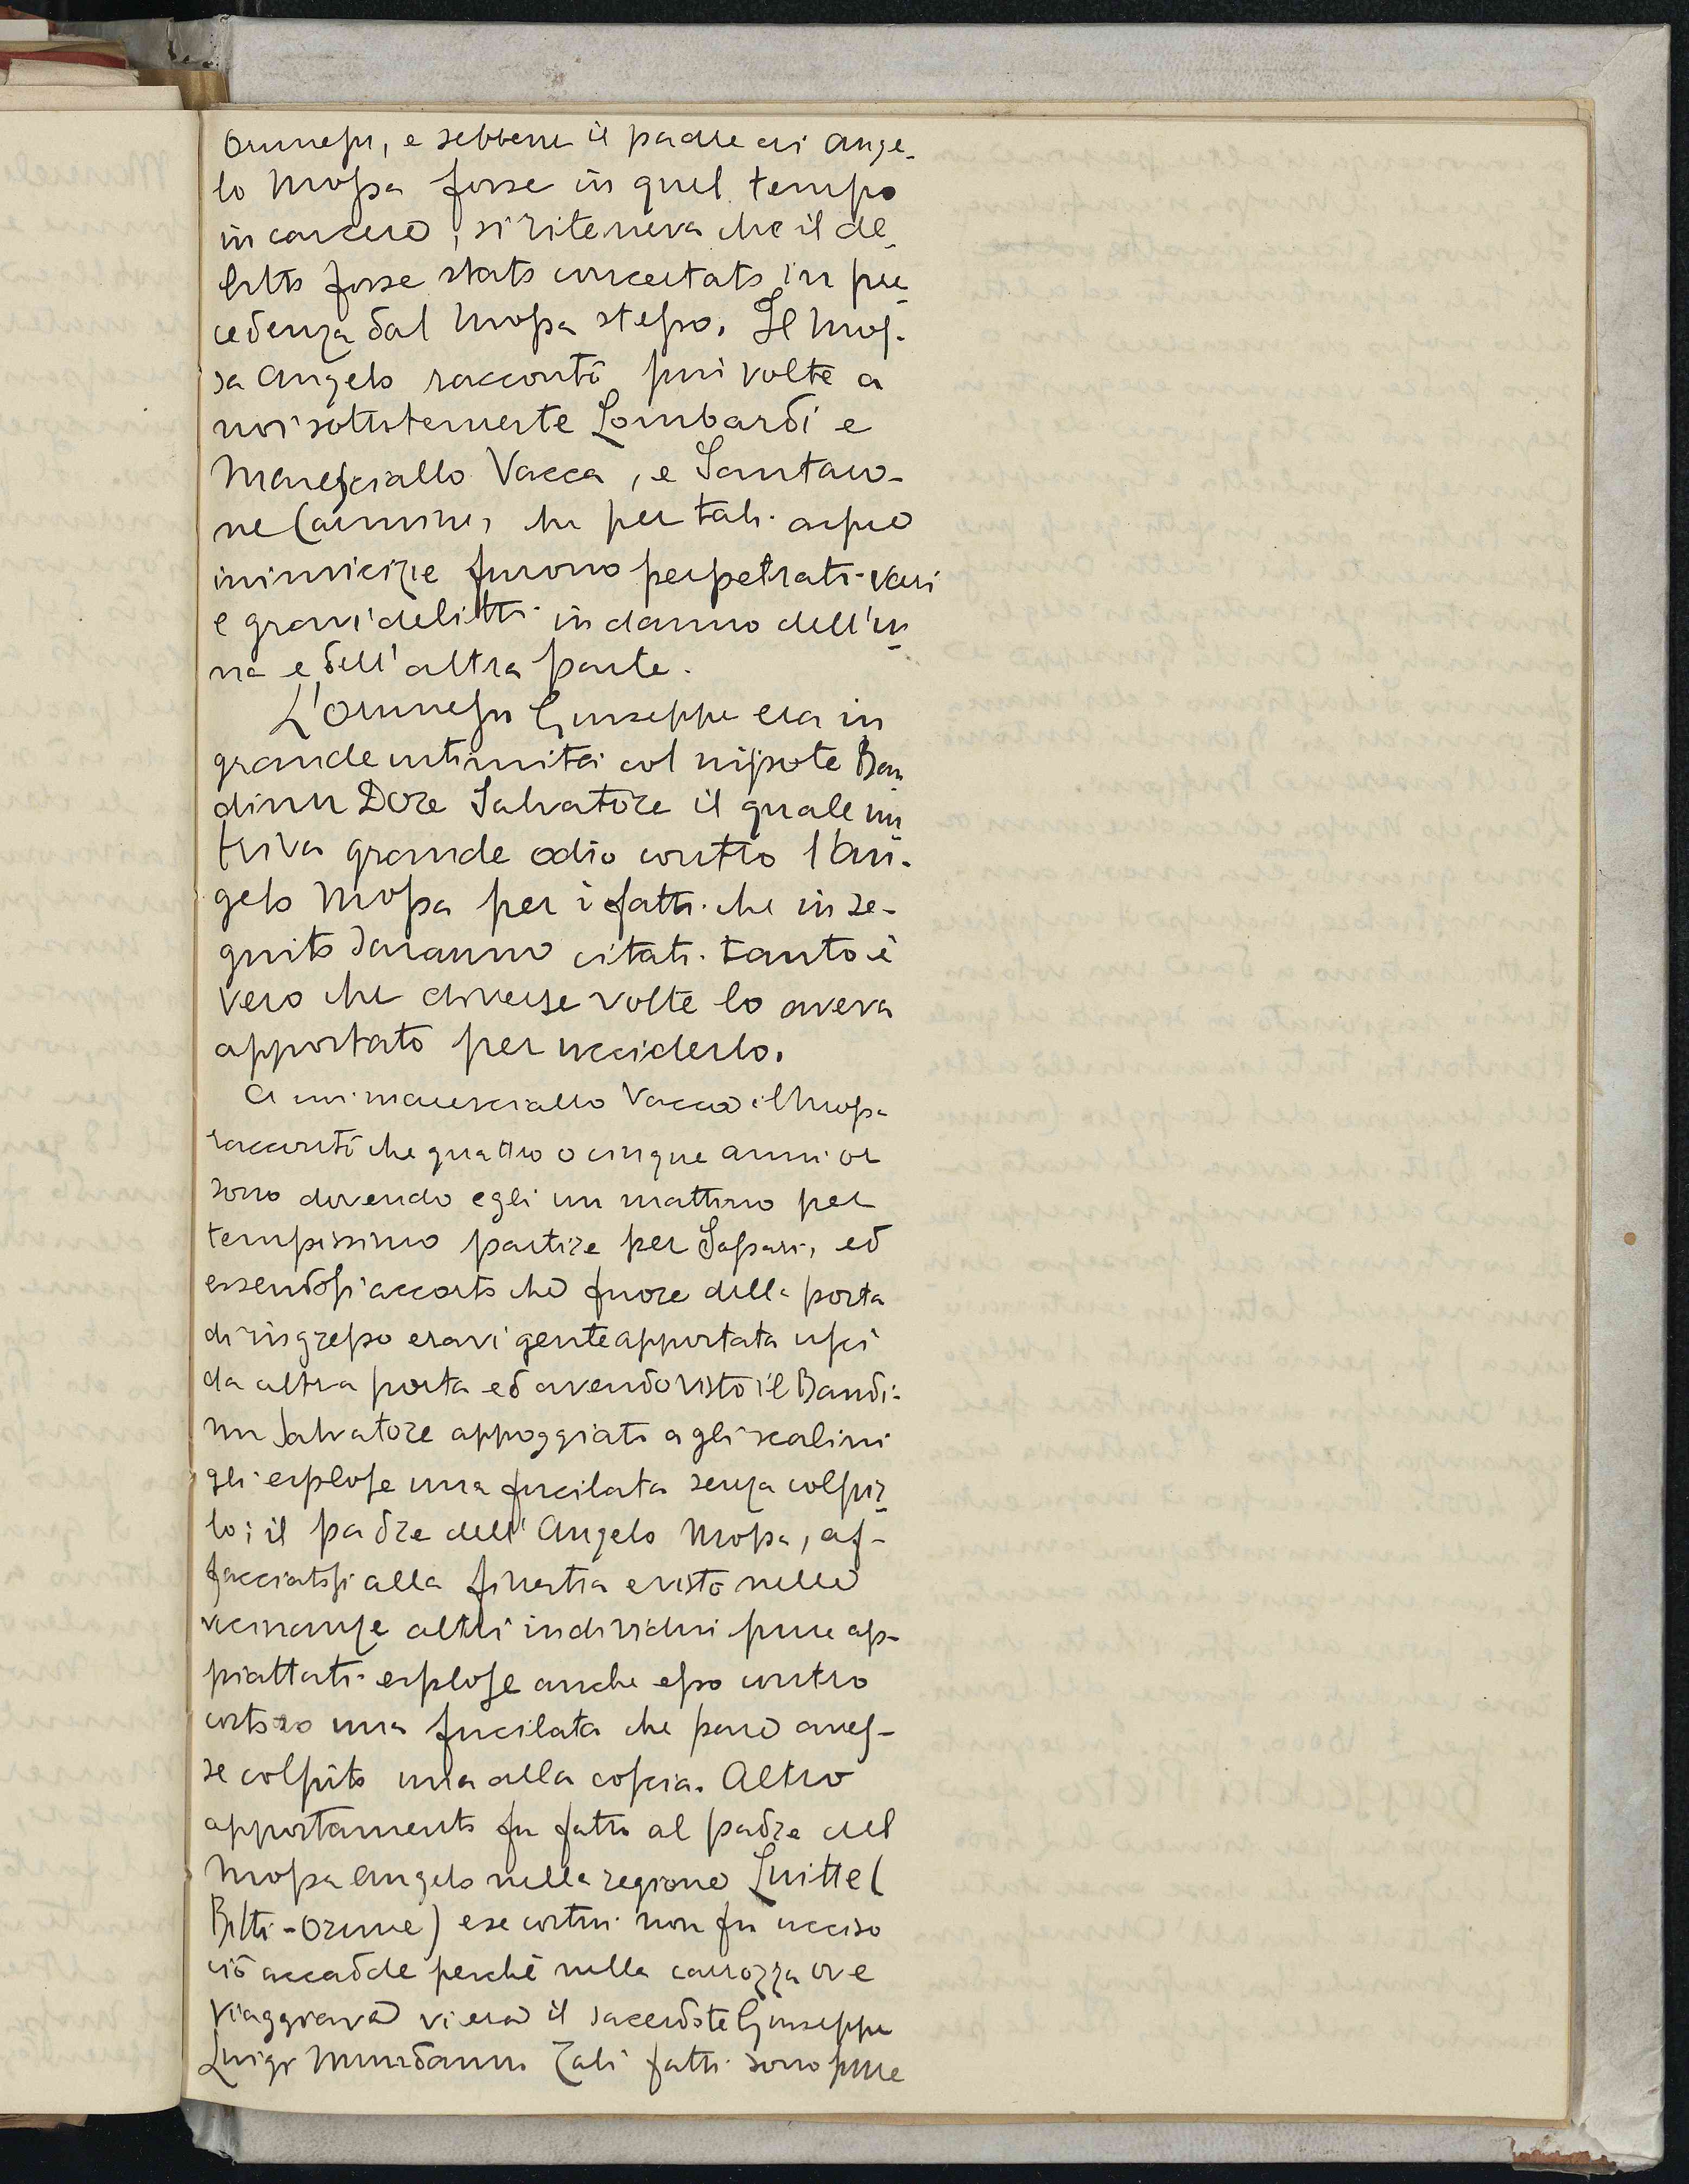 Orunesu, e sebbene il padre di Ange-
lo Mossa fosse in quel tempo
in carcere, si riteneva che il de-
litto fosse stato concertato in pre-
cedenza dal Mossa stesso. Il Mos-
sa Angelo raccontò più volte a
noi sottotenente Lombardi e
Maresciallo Vacca, e Santaro-
ne Carmine, che per tali aspre
inimicizie furono perpetrati vari
e gravi delitti in danno dell'u-
na e dell'altra parte.
L'Orunesu Giuseppe era in
grande intimità col nipote Ban
dinu Dore Salvatore il quale nu
triva grande odio contro l'An-
gelo Mossa per i fatti che in se-
guito saranno citati. tanto è
vero che diverse volte lo aveva
appostato per ucciderlo.
A noi maresciallo Vacca il Mossa
raccontò che quattro o cinque anni or
sono dovendo egli un mattino per
tempissimo partire per Sassari, ed
essendosi accorto che fuore della porta
di ingresso eravi gente appostata uscì
da altra porta ed avendo visto il Bandi-
nu Salvatore appoggiato agli scalini
gli esplose una fucilata senza colpir-
lo; il padre dell'Angelo Mossa, af-
facciatosi alla finestra e visto nelle
vicinanze altri individui pure ap-
piattati esplose anche esso contro
costoro una fucilata che pare aves-
se colpito una alla coscia. Altro
appostamento fu fatto al padre del
Mossa Angelo nella regione Luitte (
Bitti-Orune) e se costui non fu ucciso
ciò accadde perchè nella carrozza ove
viaggiava vi era il sacerdote Giuseppe
Luigi Murdanu. Tali fatti sono pure